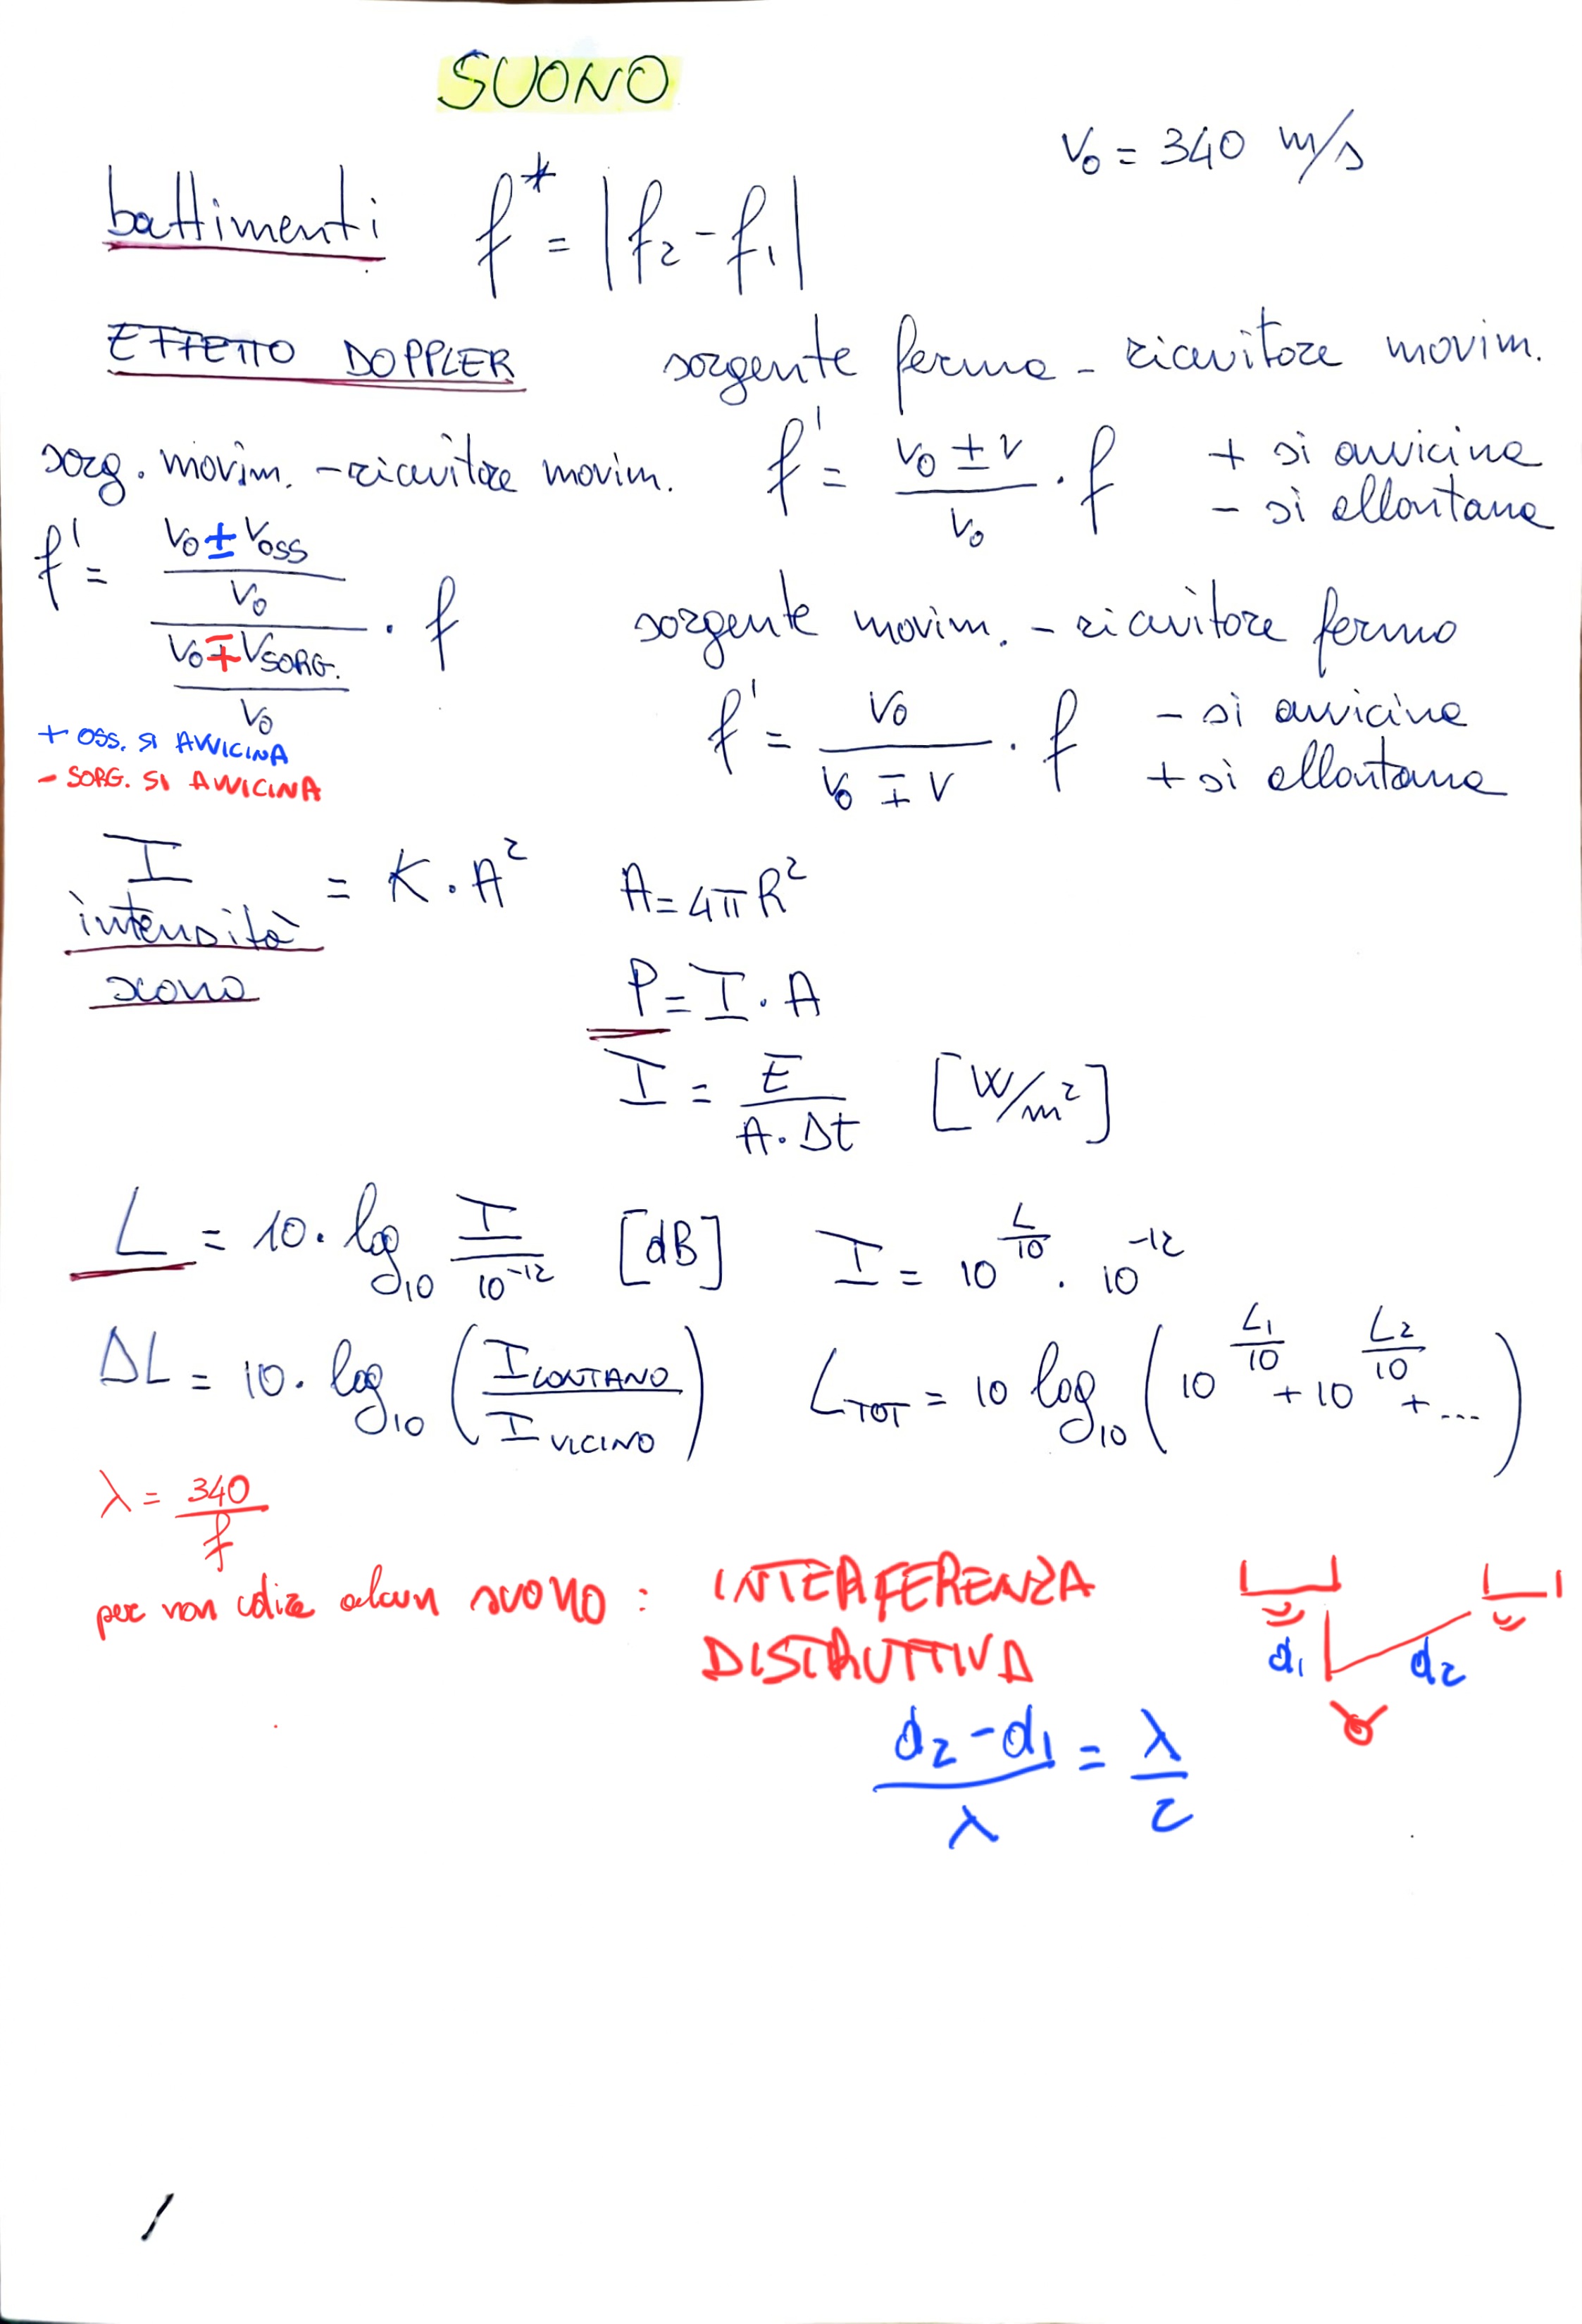 SUONO
v₀ = 340 m/s
battimenti f* = |f₂ - f₁|
EFFETTO DOPPLER
sorgente ferma - ricevitore movim.
f' = (v₀ ± v) / v₀ · f
+ si avvicina
- si allontana
sorg. movim. - ricevitore movim.
f' = ((v₀ ± vOSS) / v₀) / ((v₀ ∓ vSORG.) / v₀) · f
+ OSS. SI AVVICINA
- SORG. SI AVVICINA
sorgente movim. - ricevitore fermo
f' = v₀ / (v₀ ∓ v) · f
- si avvicina
+ si allontana
I = K · A²
intensità
suono
A = 4πR²
P = I · A
I = E / (A · Δt) [W/m²]
L = 10 · log₁₀ I / 10⁻¹² [dB]
I = 10^(L/10) · 10⁻¹²
ΔL = 10 · log₁₀ (I LONTANO / I VICINO)
LTOT = 10 log₁₀ (10^(L₁/10) + 10^(L₂/10) + ...)
λ = 340 / f
per non udire alcun suono : INTERFERENZA
DISTRUTTIVA
d₁ d₂
(d₂ - d₁) / λ = λ / 2